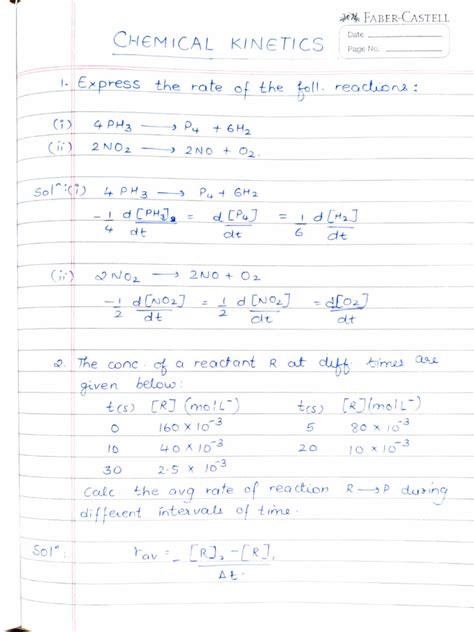 FABER-CASTELL
Date
Page No.
CHEMICAL KINETICS
1. Express the rate of the foll. reactions :
(i) 4PH₃ ⟶ P₄ + 6H₂
(ii) 2NO₂ ⟶ 2NO + O₂.
Solⁿ:(i) 4PH₃ ⟶ P₄ + 6H₂
-1/4 d[PH₃]/dt = d[P₄]/dt = 1/6 d[H₂]/dt
(ii) 2NO₂ ⟶ 2NO + O₂
-1/2 d[NO₂]/dt = 1/2 d[NO₂]/dt = d[O₂]/dt
2. The conc. of a reactant R at diff. times are
given below:
t(s) [R] (mol L⁻) t(s) [R](mol L⁻)
0 160 × 10⁻³ 5 80 × 10⁻³
10 40 × 10⁻³ 20 10 × 10⁻³
30 2.5 × 10⁻³
Calc the avg rate of reaction R ⟶ P during
different intervals of time.
Solⁿ: rav = - [R]₂ - [R]₁ / Δt.